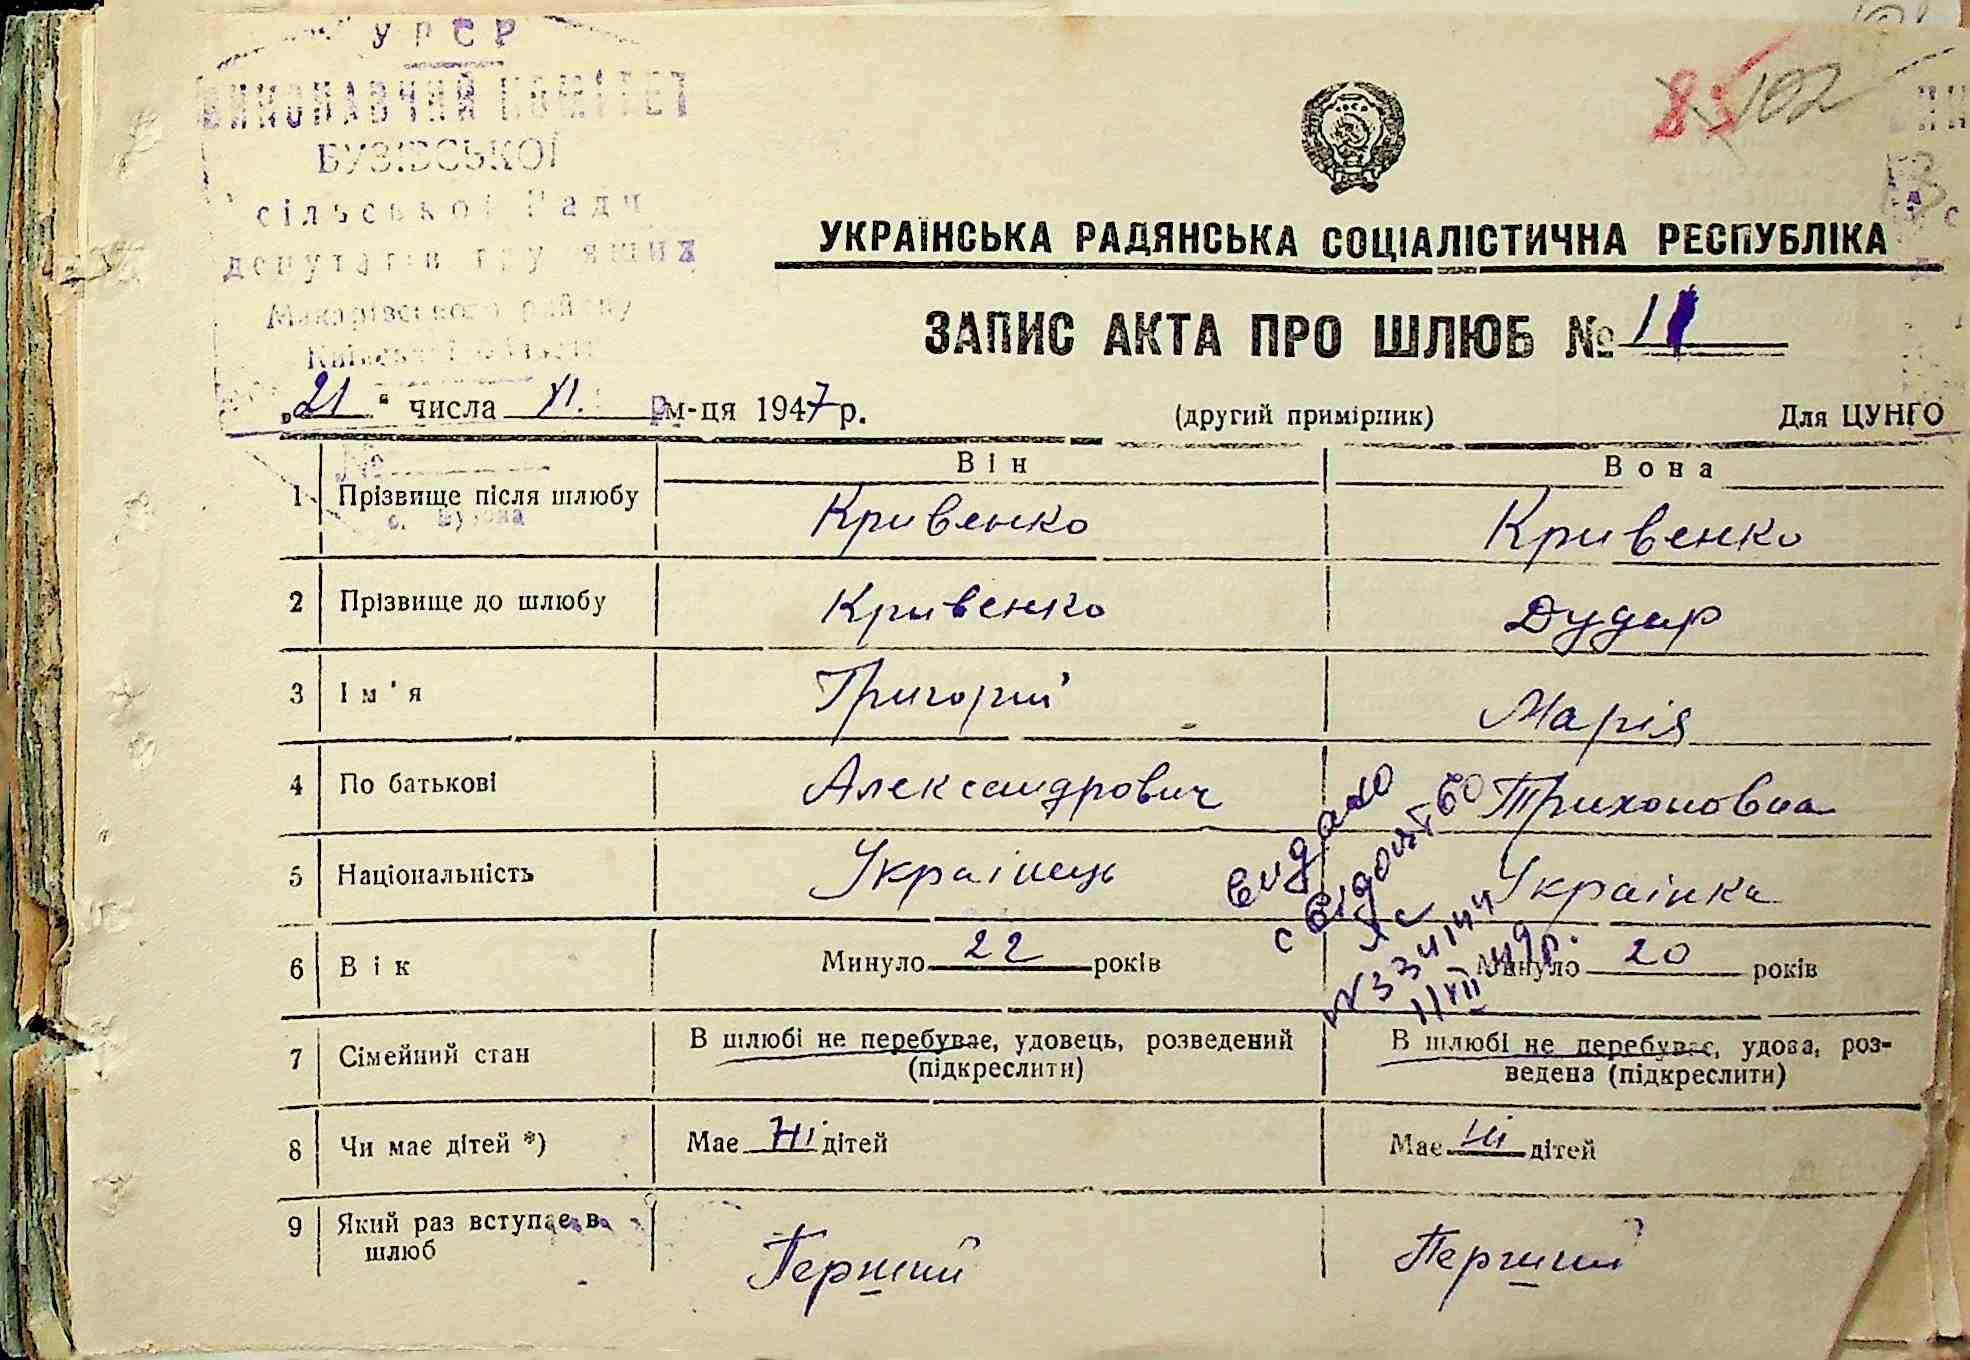 УРСР
ВИКОНАВЧИЙ КОМІТЕТ
БУЗІВСЬКОЇ
сільської Ради
депутатів трудящих
Макарівського району
Київської області
85 102
УКРАЇНСЬКА РАДЯНСЬКА СОЦІАЛІСТИЧНА РЕСПУБЛІКА
ЗАПИС АКТА ПРО ШЛЮБ № 11
„21“ числа XI. м-ця 1947 р. (другий примірник) Для ЦУНГО
№
Він Вона
1 Прізвище після шлюбу Кривенко Кривенко
с. Бузова
2 Прізвище до шлюбу Кривенко Дудар
3 Ім'я Григорий Марія
4 По батькові Александрович Трихоновна
5 Національність Украінець Украінка
видано
свідоцтво
№334144
11/VII 49р.
6 Вік Минуло 22 років Минуло 20 років
7 Сімейний стан В шлюбі не перебуває, удовець, розведений В шлюбі не перебуває, удова, роз-
(підкреслити) ведена (підкреслити)
8 Чи має дітей *) Має Ні дітей Має Ні дітей
9 Який раз вступає в Перший Перший
шлюб